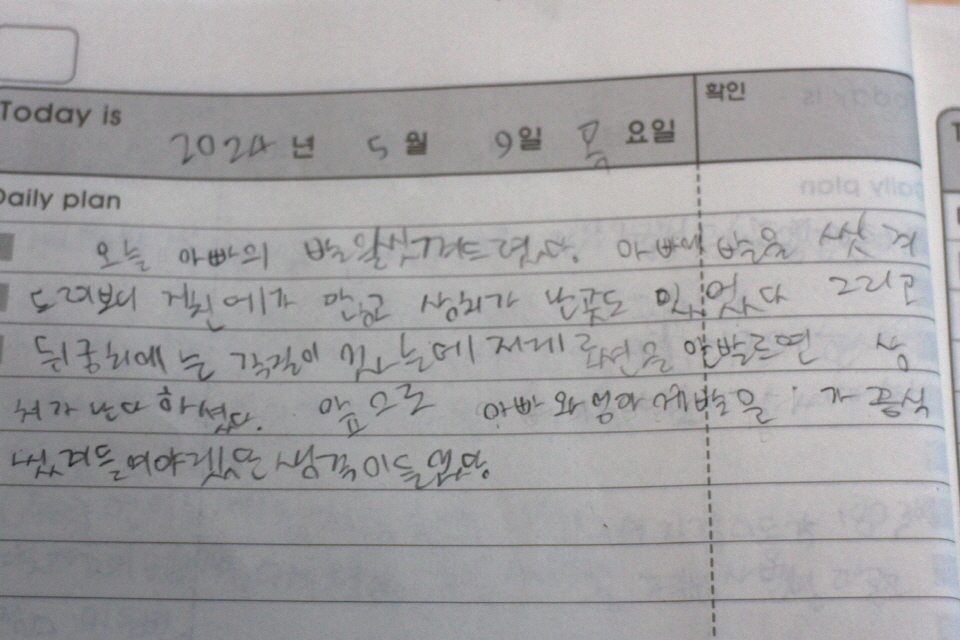 확인
Today is 2024 년 5 월 9일 목 요일
Daily plan
오늘 아빠의 발을씻겨드렸다. 아빠에 발을 씻겨
드려보니 거친 상처가 난곳도 있었다 그리고
뒤굼치에 는 각질이 있는데 로션을 안발르면 상
처가 난다 하셨다. 앞으로 아빠 와 엄마 발을 가 끔식
씻겨들여야겠단 생각이들었당